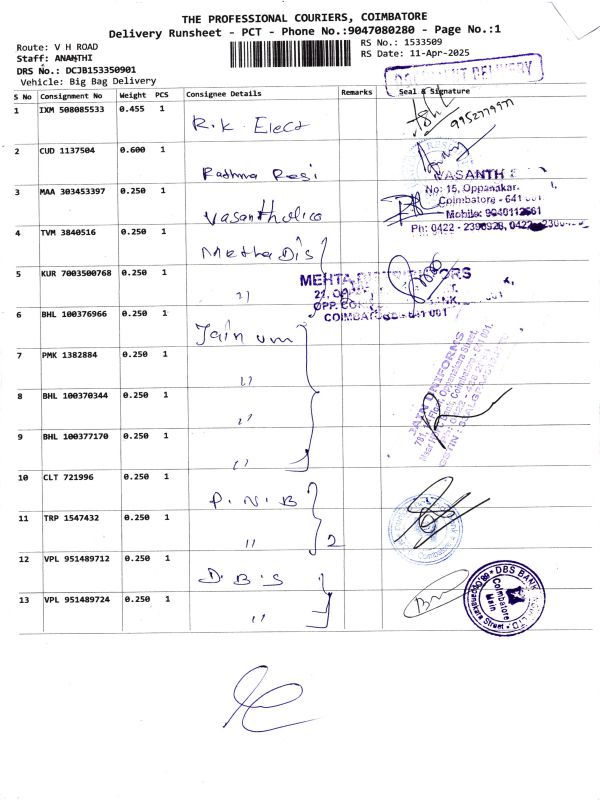 THE PROFESSIONAL COURIERS, COIMBATORE
Delivery Runsheet - PCT - Phone No.:9047080280 - Page No.:1
Route: V H ROAD
RS No.: 1533509
Staff: ANANTHI
RS Date: 11-Apr-2025
DRS No.: DCJB153350901
Vehicle: Big Bag Delivery
S No Consignment No Weight PCS Consignee Details Remarks Seal & Signature
1 IXM 508085533 0.455 1 R.K Elect
9952779971
2 CUD 1137504 0.600 1
VASANTH
3 MAA 303453397 0.250 1
No: 15, Oppanakar
Coimbatore - 641 001
Mobile:
Ph: 0422 - 2390928, 0422
4 TVM 3840516 0.250 1 Metha Dis
5 KUR 7003500768 0.250 1 "
MEHTA DISTRIBUTORS
COIMBATORE - 641 001
6 BHL 100376966 0.250 1 Jain um
7 PMK 1382884 0.250 1 "
8 BHL 100370344 0.250 1 "
9 BHL 100377170 0.250 1 "
JAIN UNIFORMS
10 CLT 721996 0.250 1 P.N.B
11 TRP 1547432 0.250 1 " 2
12 VPL 951489712 0.250 1 D.B.S
13 VPL 951489724 0.250 1 "
DBS BANK
Coimbatore
Main